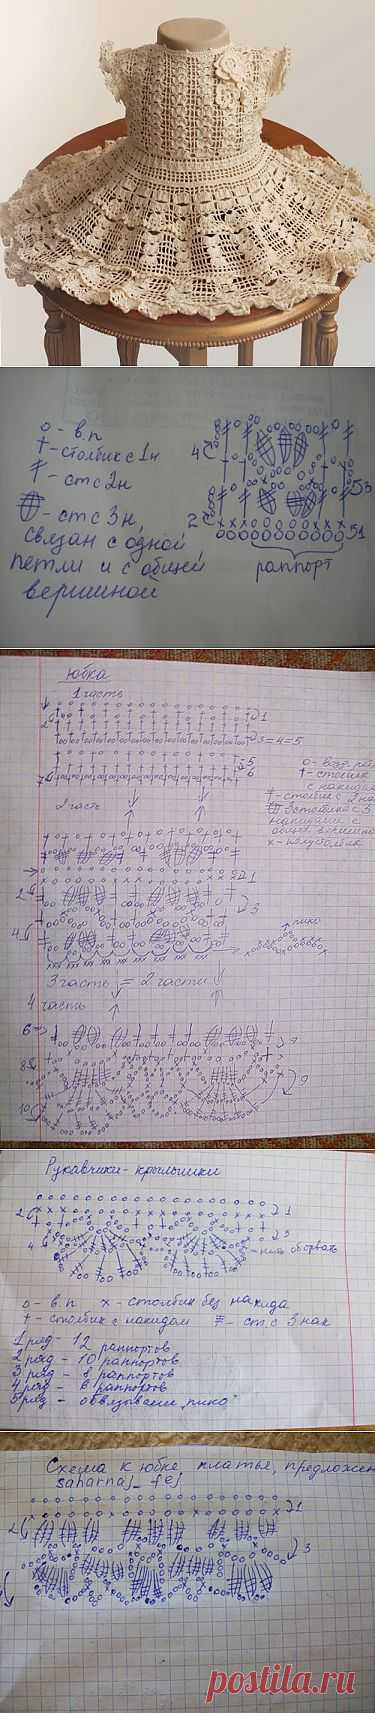 о - в.п
† - столбик с 1н
ст с 2н
- ст с 3н
связан с одной
петли и с общей
вершиной
4
2
53
51
раппорт
юбка
1 часть
1
2
3=4=5
5
6
7
о - возд.
† - столбик
с накидом
- столбик с 2 нак
3 столбика с 3
накидами с
общей вершиной
х - полустолбик
2 часть
1
2
3
4
пико
3 часть = 2 части
4 часть
6
9
8
9
10
Рукавчики-крылышки
2
1
3
4
нить оборвать
о - в.п х - столбик без накида
† - столбик с накидом - ст. с 3 нак
1 ряд - 12 раппортов
2 ряд - 10 раппортов
3 ряд - 8 раппортов
4 ряд - 6 раппортов
5 ряд - обвязывание "пико"
Схема к юбке платья, предложен
saharnaj_fej
1
2
3
postila.ru